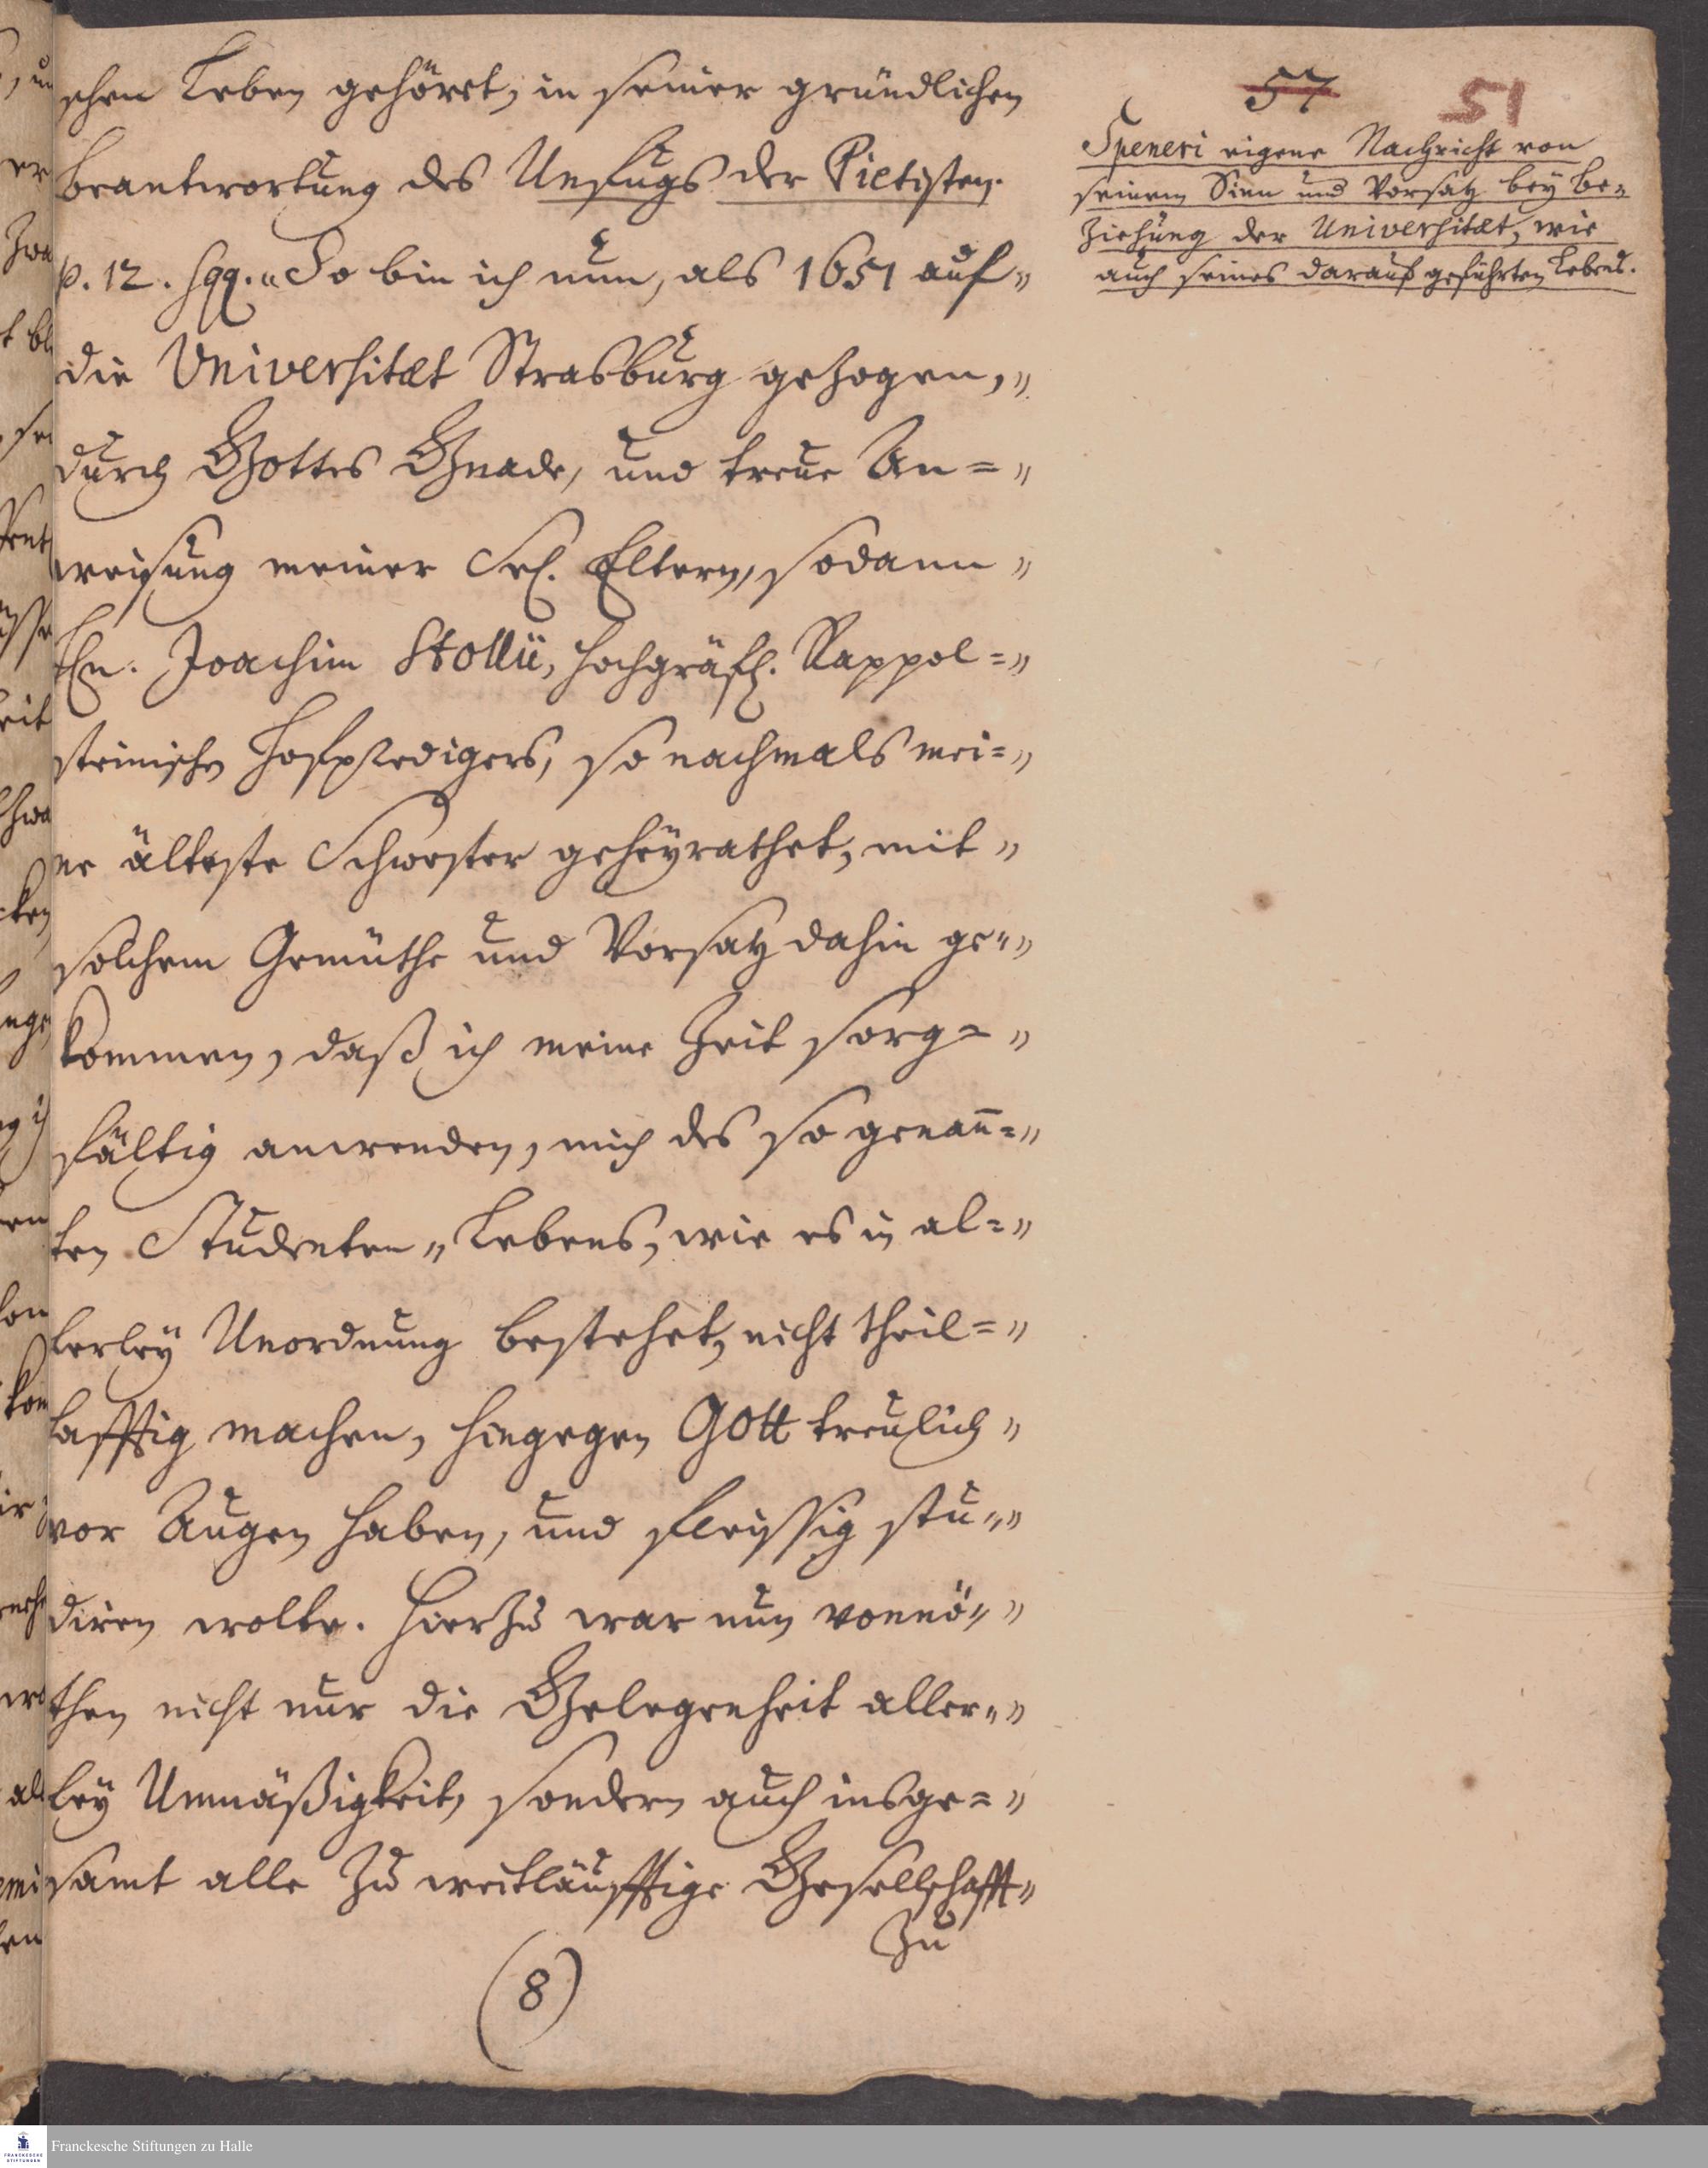 57
51
schen Leben gehöret, in seiner gründlichen
Beantwortung des Unfugs der Pietisten.
p. 12. sqq. „So bin ich nun, als 1651 auf „
die Universitæt Strasburg gezogen, „
durch Gottes Gnade, und treue An= „
weisung meiner Sel. Eltern, sodann „
Hn. Joachim Stollii, Hochgräfl. Rappol= „
steinischen Hofpredigers, so nachmals mei= „
ne älteste Schwester geheyrathet, mit „
solchem Gemüthe und Vorsatz dahin ge= „
kommen, daß ich meine Zeit sorg= „
fältig anwenden, mich des so genan̄= „
ten Studenten=Lebens, wie es in al= „
lerley Unordnung bestehet, nicht theil= „
hafftig machen, hingegen GOtt treulich „
vor Augen haben, und fleissig stu= „
diren wolte. Hierzu war nun vonnö= „
then nicht nur die Gelegenheit aller= „
ley Unmäßigkeit, sondern auch insge= „
samt alle zu weitläufftige Gesellschafft „
zu
(8)
Speneri eigene Nachricht von
seinem Sinn und Vorsatz bey Be=
ziehung der Universitæt, wie
auch seines darauf geführten Lebens.
Franckesche Stiftungen zu Halle